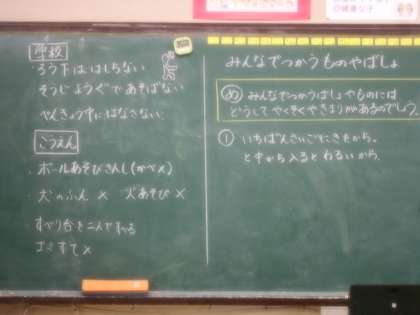 学校
・ろう下ははしらない
そうじようぐであそばない
べんきょう中にはなさない
こうえん
・ボールあそびきんし(かべ×)
・犬のふん × 火あそび ×
すべり台を二人ですべる
ゴミすて×
みんなでつかうものやばしょ
め みんなでつかうばしょやものには
どうしてやくそくやきまりがあるのでしょう。
① いちばんさいごにきたから。
と中から入るとわるいから。